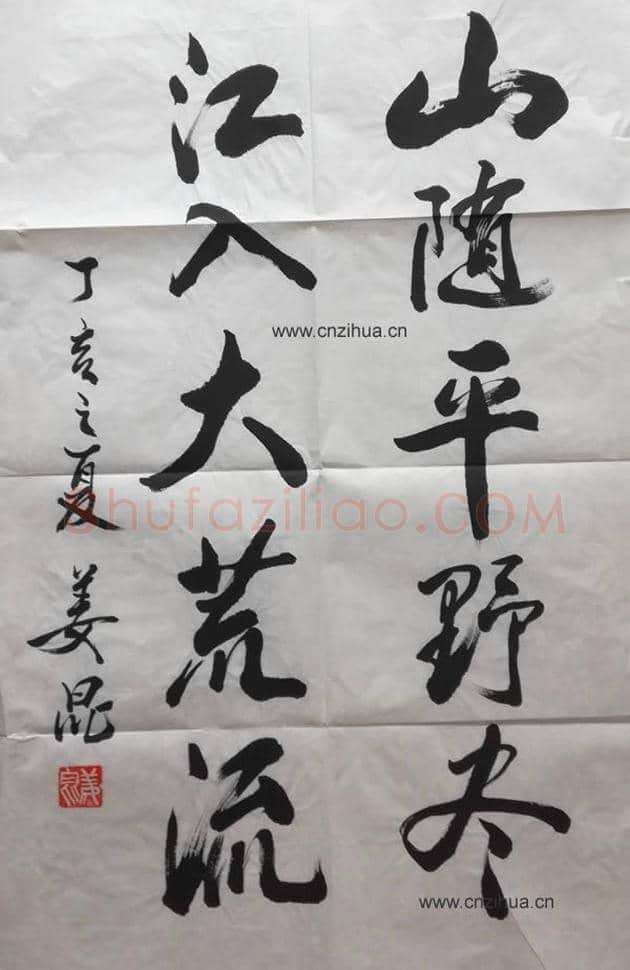 山随平野尽
江入大荒流
丁亥之夏 姜昆
www.cnzihua.cn
shufaziliao.COM
www.cnzihua.cn